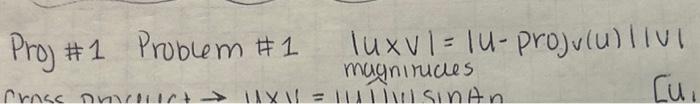 Proj #1 Problem #1 |uxv| = |u - projv(u)||v|
magnitudes
cross product → uxv = |u||v|sinθn [u,